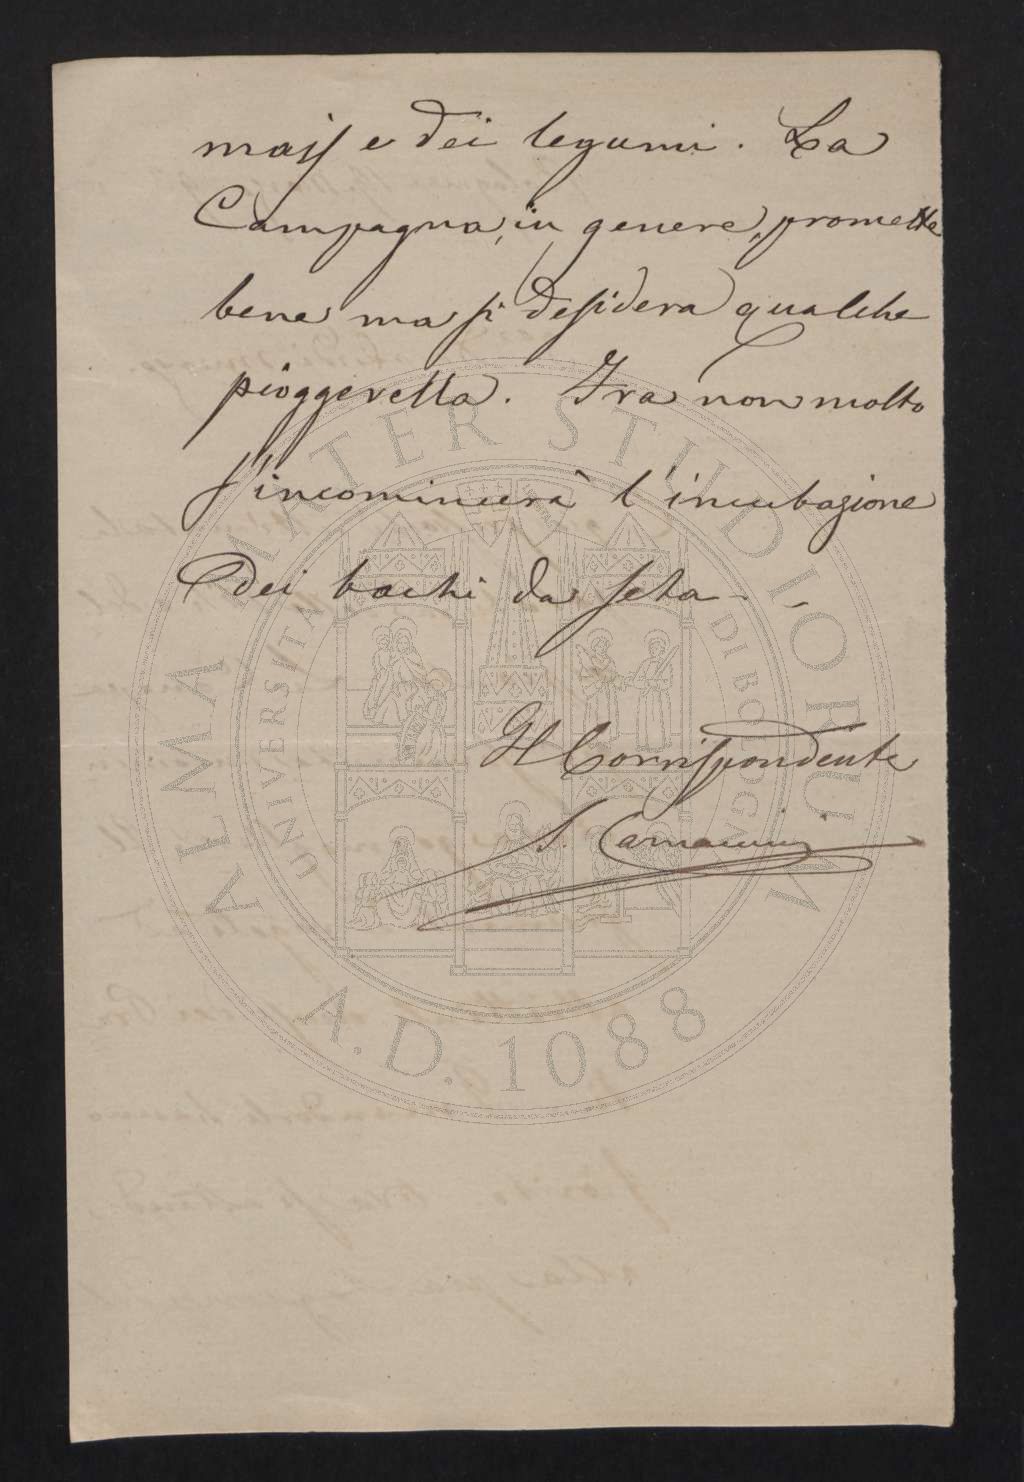 maiss e dei legumi. La
Campagna, in genere, promette
bene ma si desidera qualche
pioggerella. Fra non molto
s'incomincerà l'incubazione
dei bachi da seta - -
Il Corrispondente
ALMA MATER STUDIORUM
UNIVERSITÀ DI BOLOGNA
A.D. 1088